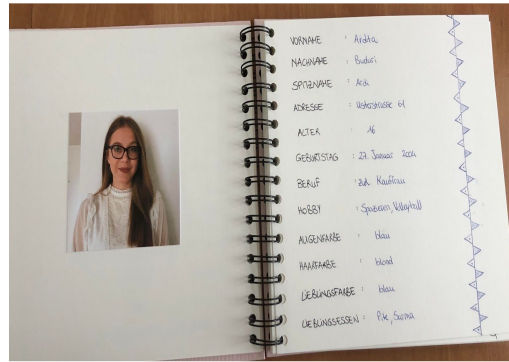 VORNAME : Ardita
NACHNAME : Buduri
SPITZNAME : Ardi
ADRESSE : Usterstrasse 61
ALTER : 16
GEBURTSTAG : 27. Januar 2004
BERUF : zuk. Kauffrau
HOBBY : Spazieren, Volleyball
AUGENFARBE : blau
HAARFARBE : blond
LIEBLINGSFARBE : blau
LIEBLINGSESSEN : Pite, Sarma